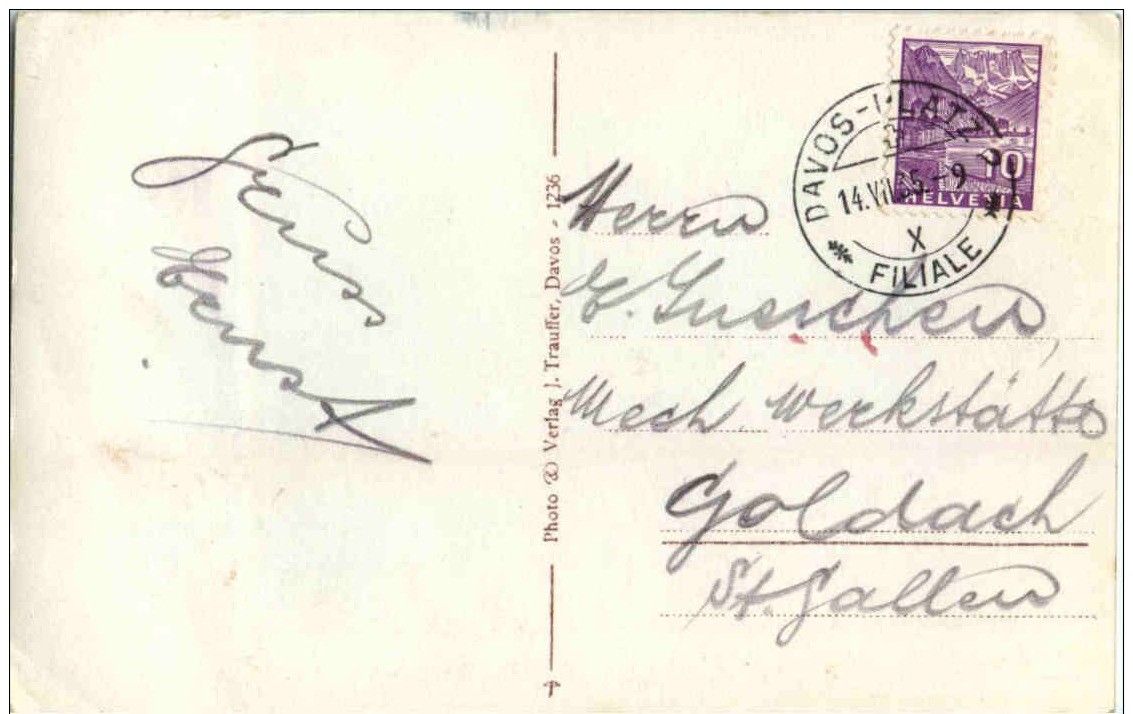 Gruss
Ernst
Photo & Verlag J. Trauffer, Davos - 1236
DAVOS-PLATZ
14.VII.35.-9
X
FILIALE
10
HELVETIA
Herrn
Mech. Werkstätte
Goldach
St. Gallen